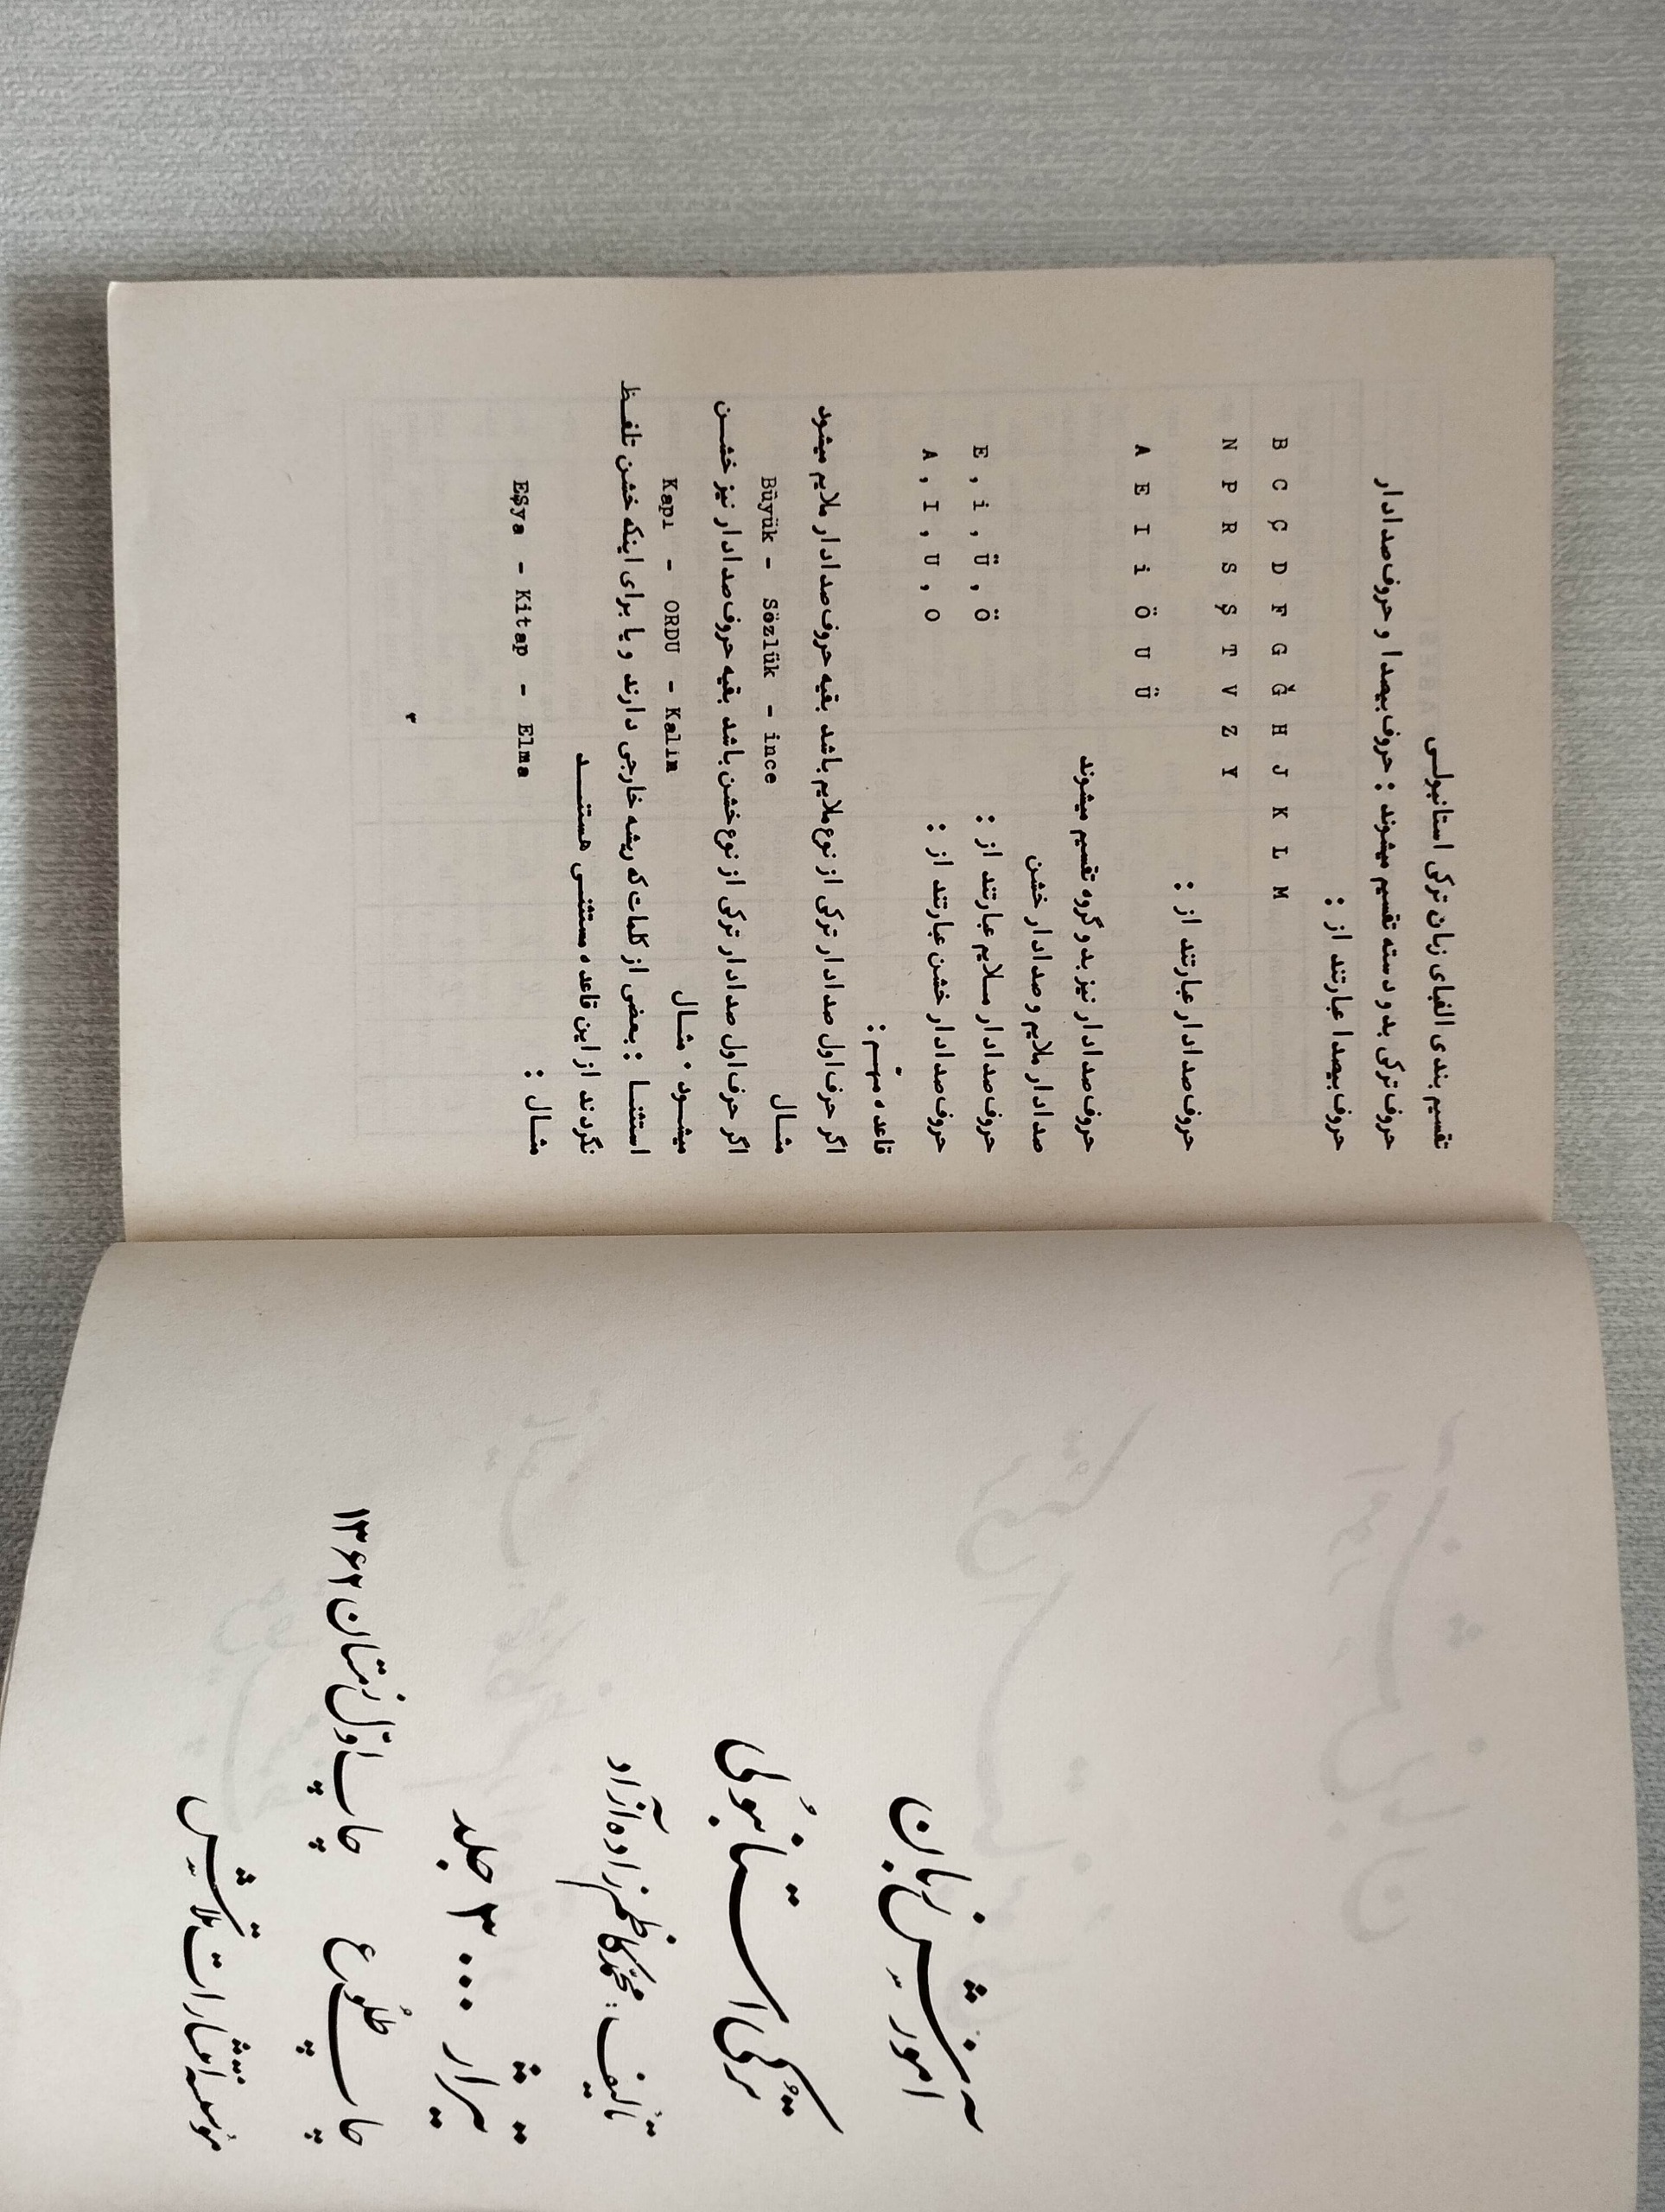 آموزش زبان
ترکی استانبولی
تألیف : محمد کاظم زاده آزاد
تیراژ ۳۰۰۰ جلد
چاپ طلوع چاپ اول زمستان ۱۳۶۲
مؤسسه انتشارات تلاش
تقسیم بندی الفبای زبان ترکی استانبولی
حروف ترکی بدو دسته تقسیم میشوند : حروف بیصدا و حروف صدادار
حروف بیصدا عبارتند از :
B C Ç D F G Ğ H J K L M
N P R S Ş T V Z Y
حروف صدادار عبارتند از :
A E I i Ö U Ü
حروف صدادار نیز بدو گروه تقسیم میشوند
صدادار ملایم و صدادار خشن
حروف صدادار ملایم عبارتند از : E , i , Ü , Ö
حروف صدادار خشن عبارتند از : A , I , U , O
قاعده مهم :
اگر حرف اول صدادار ترکی از نوع ملایم باشد بقیه حروف صدادار ملایم میشود
مثال Büyük - Sözlük - ince
اگر حرف اول صدادار ترکی از نوع خشن باشد بقیه حروف صدادار نیز خشن
میشود . مثال Kapı - ORDU - Kalın
استثنا : بعضی از کلمات که ریشه خارجی دارند و یا برای اینکه خشن تلفظ
نگردند از این قاعده مستثنی هستند
مثال : EŞya - Kitap - Elma
۳